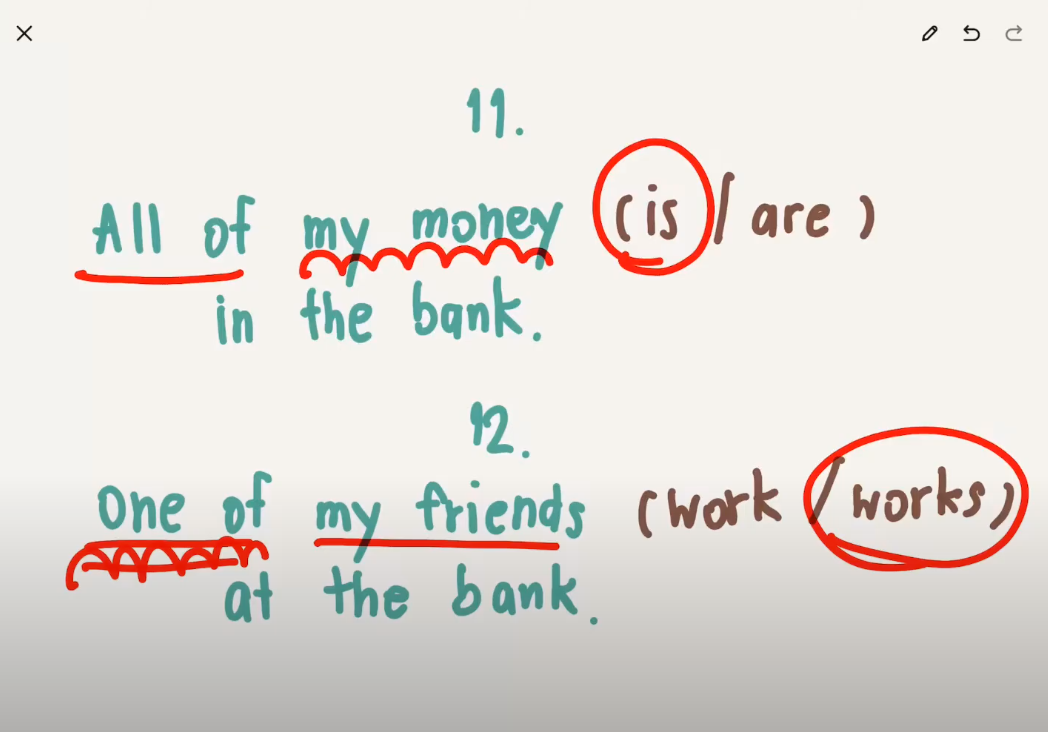 11.
All of my money (is / are)
in the bank.
12.
One of my friends (work / works)
at the bank.